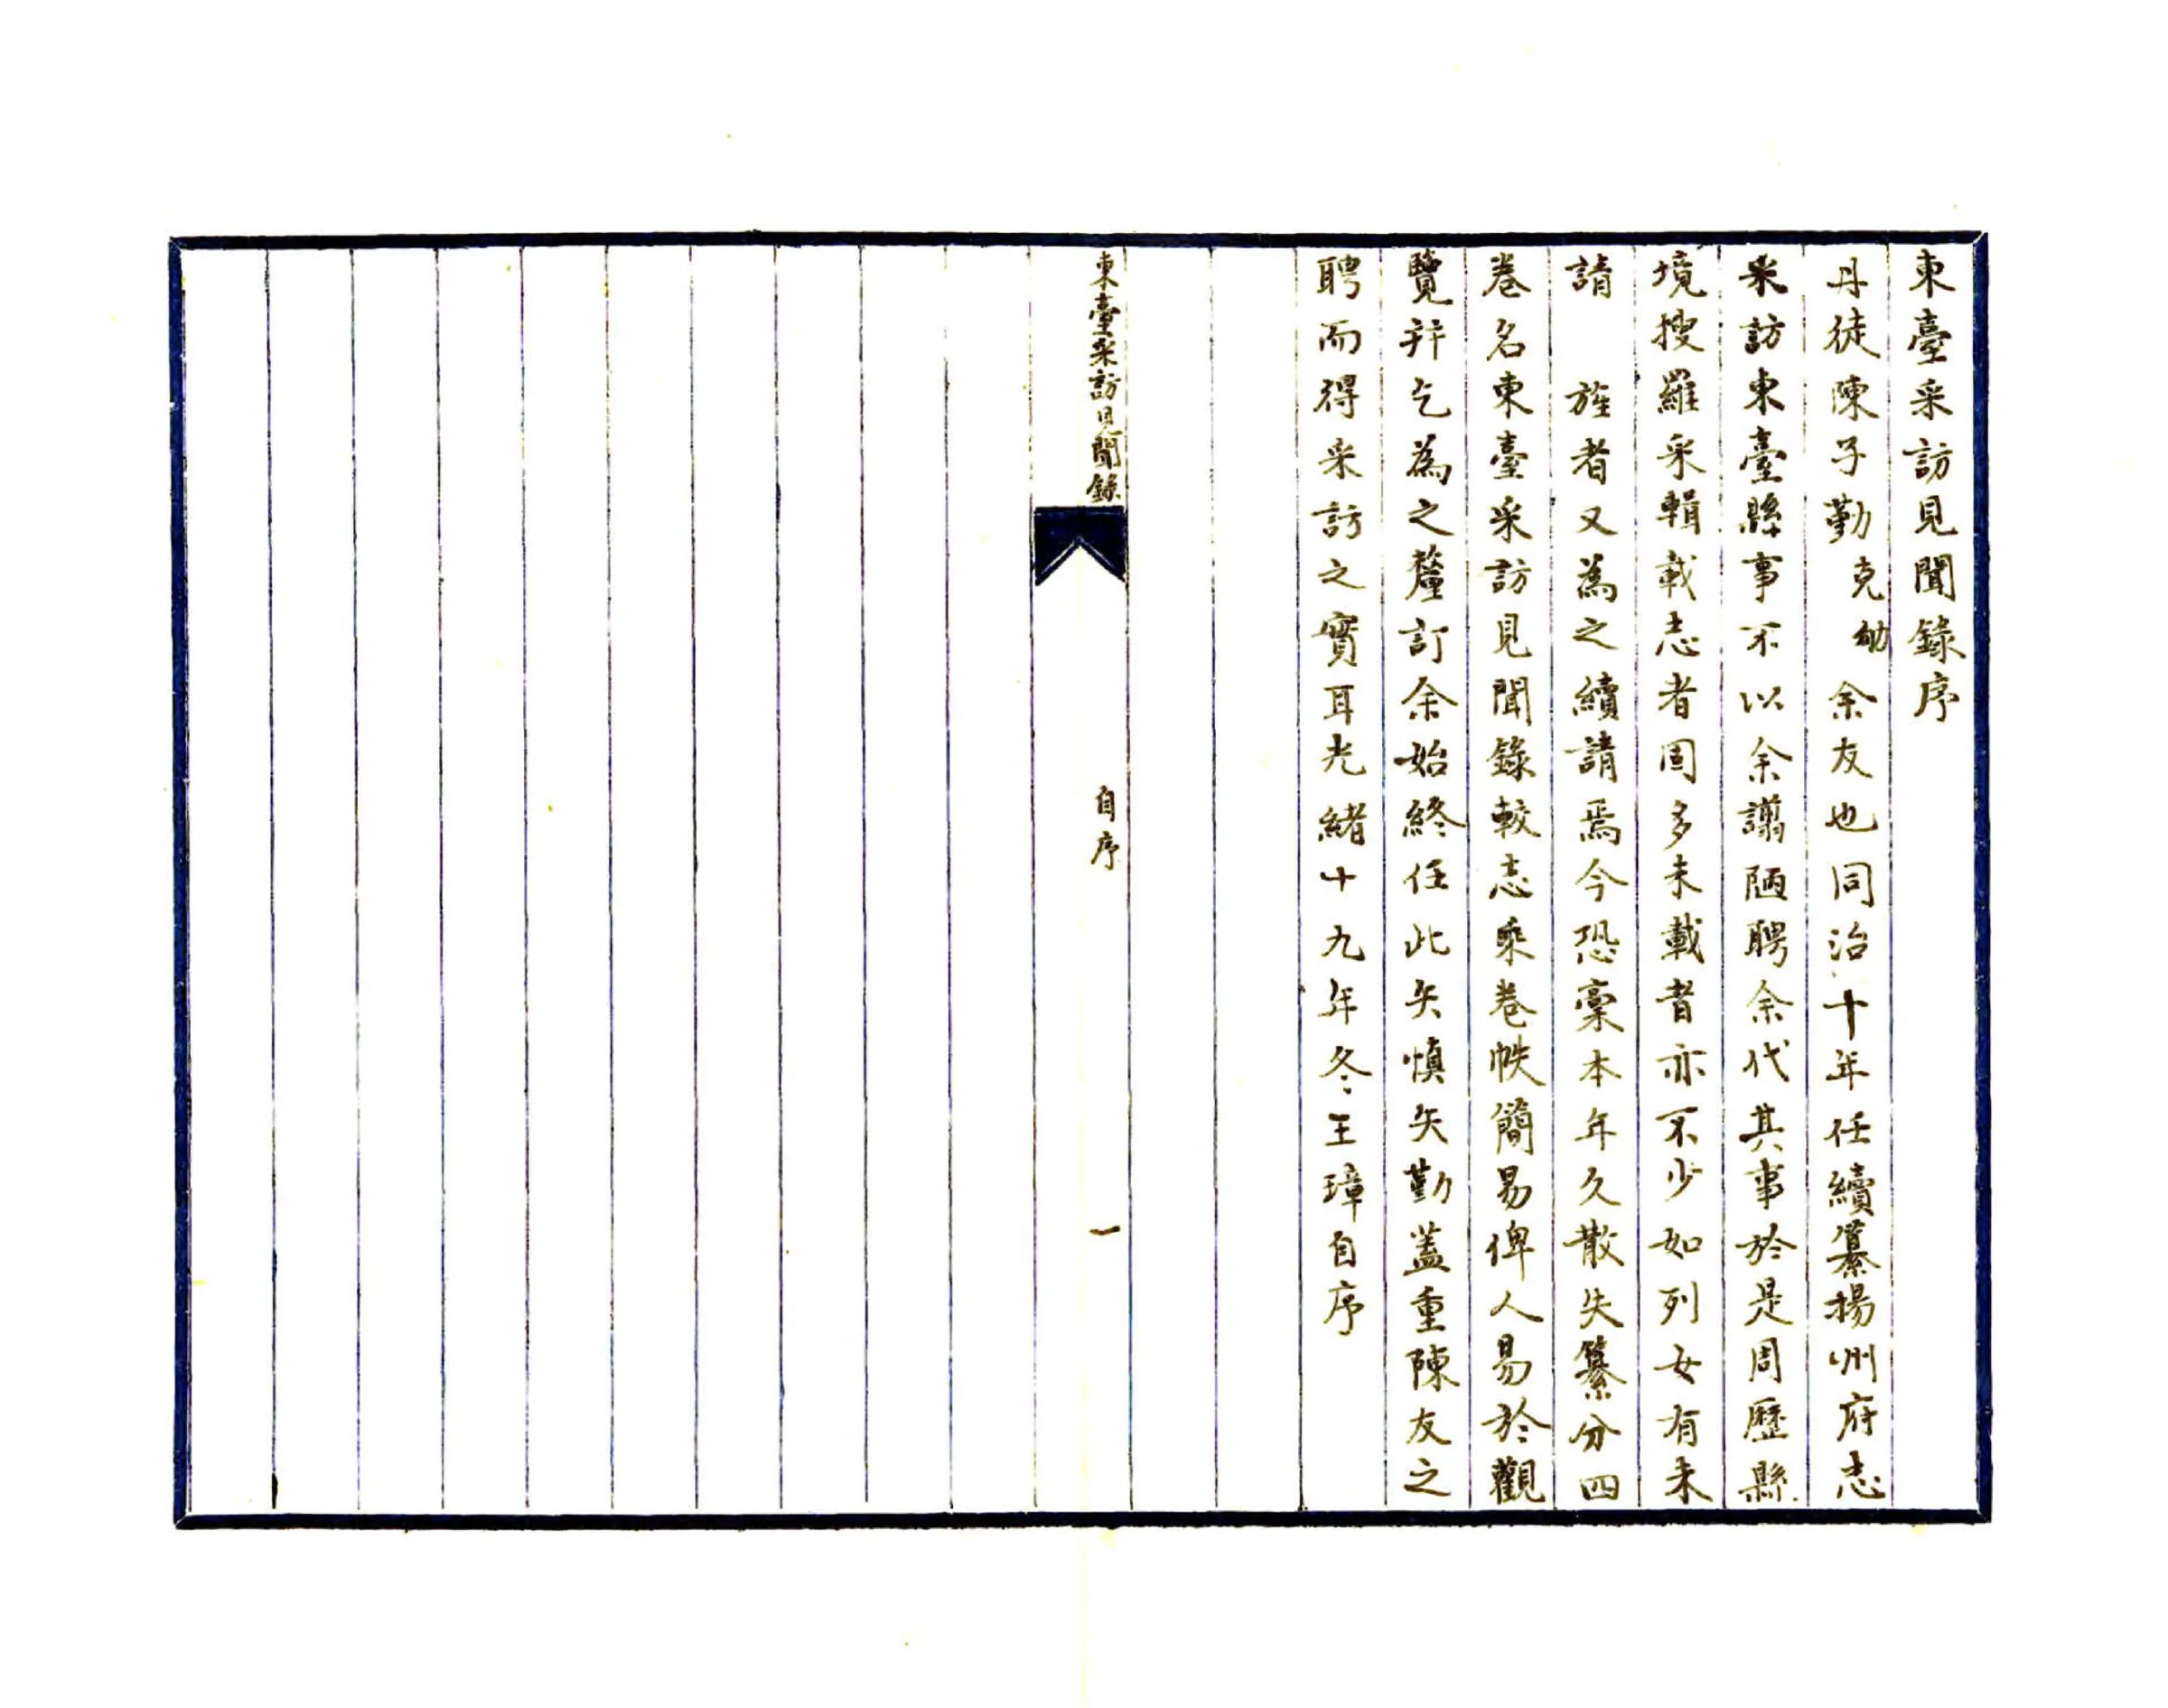 東臺采訪見聞錄序
丹徒陳子勤克劬余友也同治十年任續纂揚州府志
采訪東臺縣事不以余譾陋聘余代其事於是周歷縣
境搜羅采輯載志者固多未載者亦不少如列女有未
請　旌者又為之續請焉今恐稾本年久散失纂分四
卷名東臺采訪見聞錄較志乘卷帙簡易俾人易於觀
覽并乞為之釐訂余始終任此矢慎矢勤蓋重陳友之
聘而得采訪之實耳光緒十九年冬王璋自序
東臺采訪見聞錄
自序
一